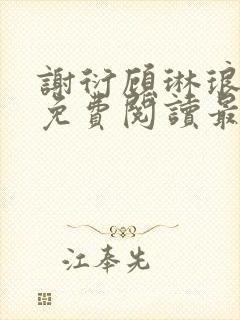 謝衍顧琳琅
免費閱讀最
江奉先